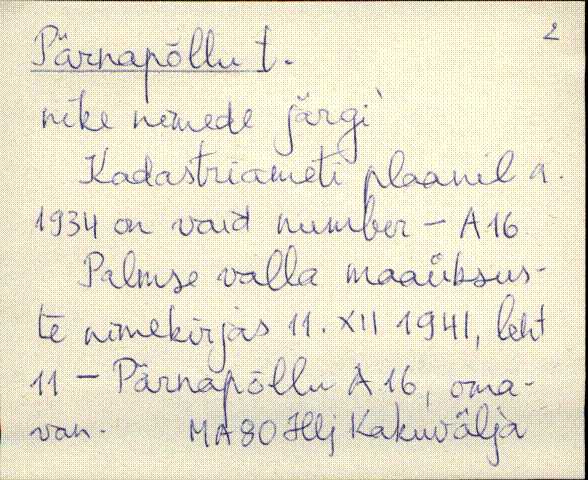 2
Pärnapõllu t.
nike nimede järgi
Kadastriameti plaanil a.
1934 on vaid number - A16
Palmse valla maaüksus-
te nimekirjas 11. XII 1941, leht
11 - Pärnapõllu A 16, oma-
van. MA80 Hlj Kakuvälja